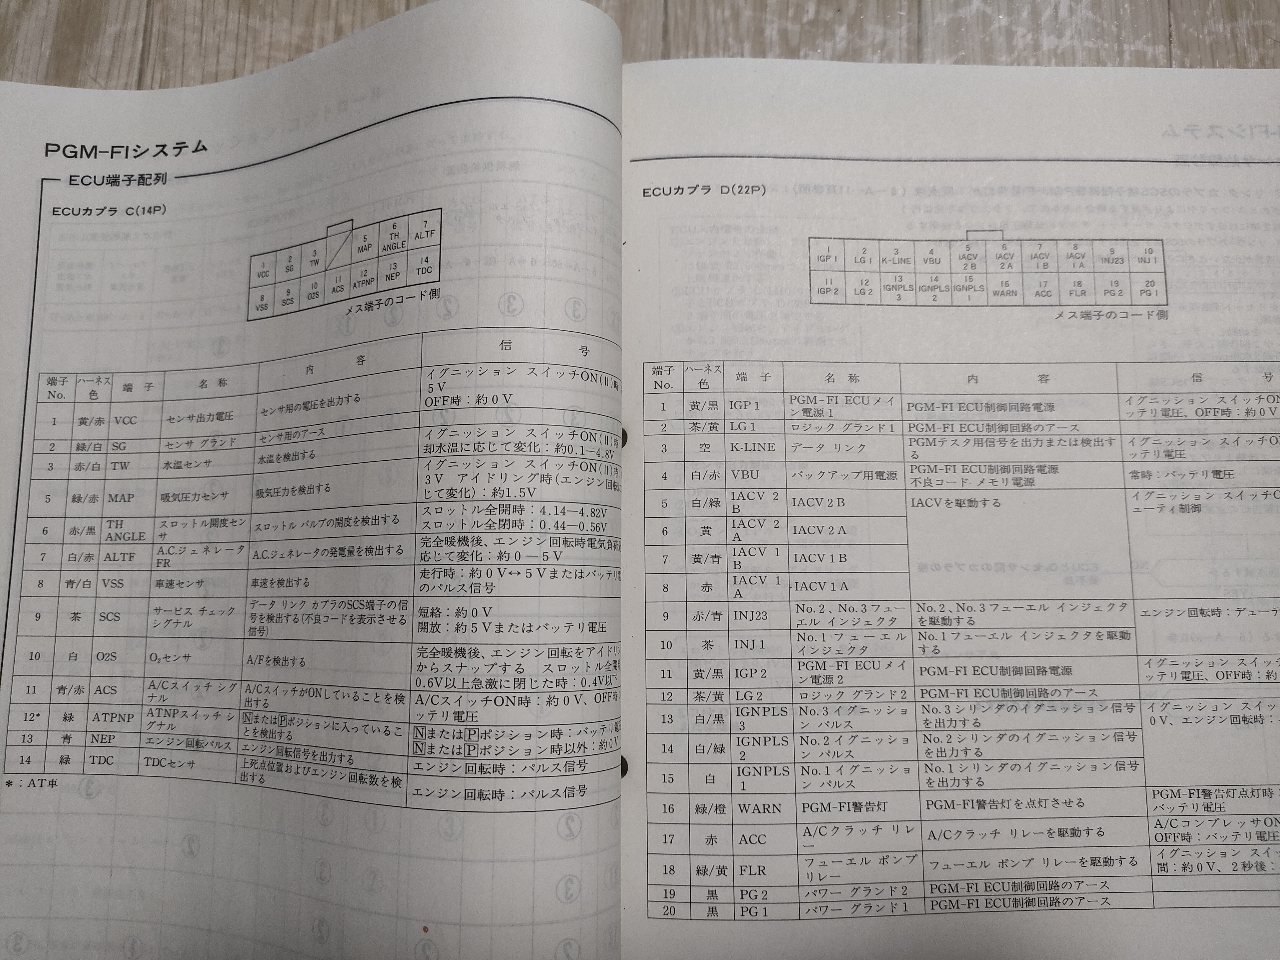 PGM-FIシステム
ECU端子配列
ECUカプラ C(14P)
1 VCC 2 SG 3 TW 5 MAP 6 TH ANGLE 7 ALTF
8 VSS 9 SCS 10 O2S 11 ACS 12 ATPNP 13 NEP 14 TDC
メス端子のコード側
端子No. ハーネス色 端子 名称 内容 信号
1 黄/赤 VCC センサ出力電圧 センサ用の電圧を出力する イグニッション スイッチON(II)
5V
OFF時：約0V
2 緑/白 SG センサ グランド センサ用のアース
3 赤/白 TW 水温センサ 水温を検出する イグニッション スイッチON(II)
却水温に応じて変化：約0.1−4.8V
5 緑/赤 MAP 吸気圧力センサ 吸気圧力を検出する イグニッション スイッチON(II)
3V アイドリング時(エンジン回転
じて変化)：約1.5V
6 赤/黒 TH ANGLE スロットル開度センサ スロットル バルブの開度を検出する スロットル全開時：4.14—4.82V
スロットル全閉時：0.44—0.56V
7 白/赤 ALTF A.C.ジェネレータ FR A.C.ジェネレータの発電量を検出する 完全暖機後、エンジン回転時電気負荷
応じて変化：約0—5V
8 青/白 VSS 車速センサ 車速を検出する 走行時：約0V↔5Vまたはバッテリ
のパルス信号
9 茶 SCS サービス チェック シグナル データ リンク カプラのSCS端子の信号を検出する(不良コードを表示させる信号) 短絡：約0V
開放：約5Vまたはバッテリ電圧
10 白 O2S O₂センサ A/Fを検出する 完全暖機後、エンジン回転をアイドリ
からスナップする スロットル全
0.6V以上急激に閉じた時：0.4V以
11 青/赤 ACS A/Cスイッチ シグナル A/CスイッチがONしていることを検出する A/CスイッチON時：約0V、OFF時
ッテリ電圧
12* 緑 ATPNP ATNPスイッチ シグナル NまたはPポジションに入っていることを検出する NまたはPポジション時：バッテリ
NまたはPポジション時以外：約0V
13 青 NEP エンジン回転パルス エンジン回転信号を出力する エンジン回転時：パルス信号
14 緑 TDC TDCセンサ 上死点位置およびエンジン回転数を検出する エンジン回転時：パルス信号
*：AT車
ECUカプラ D(22P)
1 IGP1 2 LG1 3 K-LINE 4 VBU 5 IACV 2B 6 IACV 2A 7 IACV 1B 8 IACV 1A 9 INJ23 10 INJ1
11 IGP2 12 LG2 13 IGNPLS 3 14 IGNPLS 2 15 IGNPLS 1 16 WARN 17 ACC 18 FLR 19 PG2 20 PG1
メス端子のコード側
端子No. ハーネス色 端子 名称 内容 信号
1 黄/黒 IGP1 PGM-FI ECUメイン電源1 PGM-FI ECU制御回路電源 イグニッション スイッチON
ッテリ電圧、OFF時：約0V
2 茶/黄 LG1 ロジック グランド1 PGM-FI ECU制御回路のアース
3 空 K-LINE データ リンク PGMテスタ用信号を出力または検出する イグニッション スイッチO
ッテリ電圧
4 白/赤 VBU バックアップ用電源 PGM-FI ECU制御回路電源
不良コード メモリ電源 常時：バッテリ電圧
5 白/緑 IACV 2B IACV2B IACVを駆動する イグニッション スイッチO
ューティ制御
6 黄 IACV 2A IACV2A
7 黄/青 IACV 1B IACV1B
8 赤 IACV 1A IACV1A
9 赤/青 INJ23 No.2、No.3フューエル インジェクタ No.2、No.3フューエル インジェクタを駆動する エンジン回転時：デューテ
10 茶 INJ1 No.1フューエル インジェクタ No.1フューエル インジェクタを駆動する
11 黄/黒 IGP2 PGM-FI ECUメイン電源2 PGM-FI ECU制御回路電源 イグニッション スイッチ
ッテリ電圧、OFF時：約
12 茶/黄 LG2 ロジック グランド2 PGM-FI ECU制御回路のアース
13 白/黒 IGNPLS 3 No.3イグニッション パルス No.3シリンダのイグニション信号を出力する イグニッション スイッチ
0V、エンジン回転時：
14 白/緑 IGNPLS 2 No.2イグニッション パルス No.2シリンダのイグニション信号を出力する
15 白 IGNPLS 1 No.1イグニッション パルス No.1シリンダのイグニション信号を出力する
16 緑/橙 WARN PGM-FI警告灯 PGM-FI警告灯を点灯させる PGM-FI警告灯点灯時：
バッテリ電圧
17 赤 ACC A/Cクラッチ リレー A/Cクラッチ リレーを駆動する A/CコンプレッサON
OFF時：バッテリ電圧
18 緑/黄 FLR フューエル ポンプ リレー フューエル ポンプ リレーを駆動する イグニッション スイッ
間：約0V、2秒後：
19 黒 PG2 パワー グランド2 PGM-FI ECU制御回路のアース
20 黒 PG1 パワー グランド1 PGM-FI ECU制御回路のアース